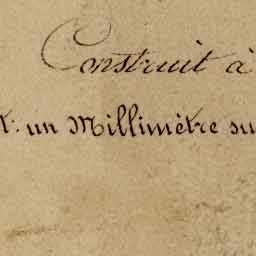 Construit à
t: un Millimètre su